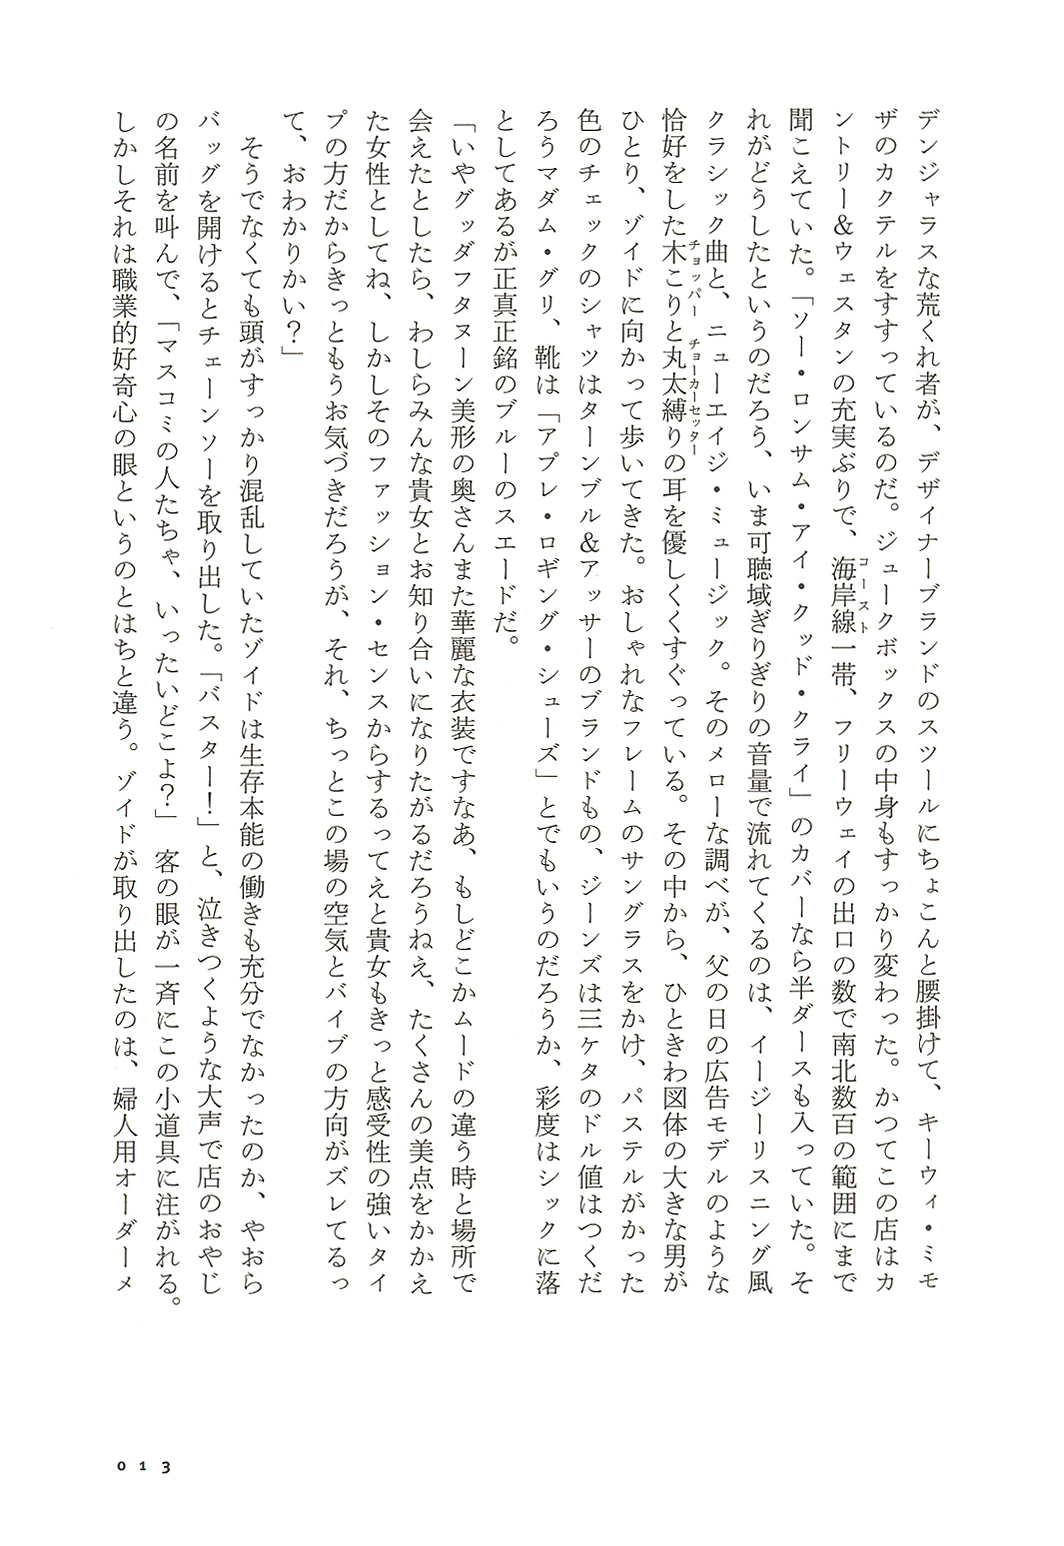 デンジャラスな荒くれ者が、デザイナーブランドのスツールにちょこんと腰掛けて、キーウィ・ミモ
ザのカクテルをすすっているのだ。ジュークボックスの中身もすっかり変わった。かつてこの店はカ
ントリー＆ウェスタンの充実ぶりで、海岸線一帯、フリーウェイの出口の数で南北数百の範囲にまで
コースト
聞こえていた。「ソー・ロンサム・アイ・クッド・クライ」のカバーなら半ダースも入っていた。そ
れがどうしたというのだろう、いま可聴域ぎりぎりの音量で流れてくるのは、イージーリスニング風
クラシック曲と、ニューエイジ・ミュージック。そのメローな調べが、父の日の広告モデルのような
恰好をした木こりと丸太縛りの耳を優しくくすぐっている。その中から、ひときわ図体の大きな男が
チョッパー チョーカーセッター
ひとり、ゾイドに向かって歩いてきた。おしゃれなフレームのサングラスをかけ、パステルがかった
色のチェックのシャツはターンブル＆アッサーのブランドもの、ジーンズは三ケタのドル値はつくだ
ろうマダム・グリ、靴は「アプレ・ロギング・シューズ」とでもいうのだろうか、彩度はシックに落
としてあるが正真正銘のブルーのスエードだ。
「いやグッダフタヌーン美形の奥さんまた華麗な衣装ですなあ、もしどこかムードの違う時と場所で
会えたとしたら、わしらみんな貴女とお知り合いになりたがるだろうねえ、たくさんの美点をかかえ
た女性としてね、しかしそのファッション・センスからするってえと貴女もきっと感受性の強いタイ
プの方だからきっともうお気づきだろうが、それ、ちっとこの場の空気とバイブの方向がズレてるっ
て、おわかりかい？」
そうでなくても頭がすっかり混乱していたゾイドは生存本能の働きも充分でなかったのか、やおら
バッグを開けるとチェーンソーを取り出した。「バスター！」と、泣きつくような大声で店のおやじ
の名前を叫んで、「マスコミの人たちゃ、いったいどこよ？」　客の眼が一斉にこの小道具に注がれる。
しかしそれは職業的好奇心の眼というのとはちと違う。ゾイドが取り出したのは、婦人用オーダーメ
013